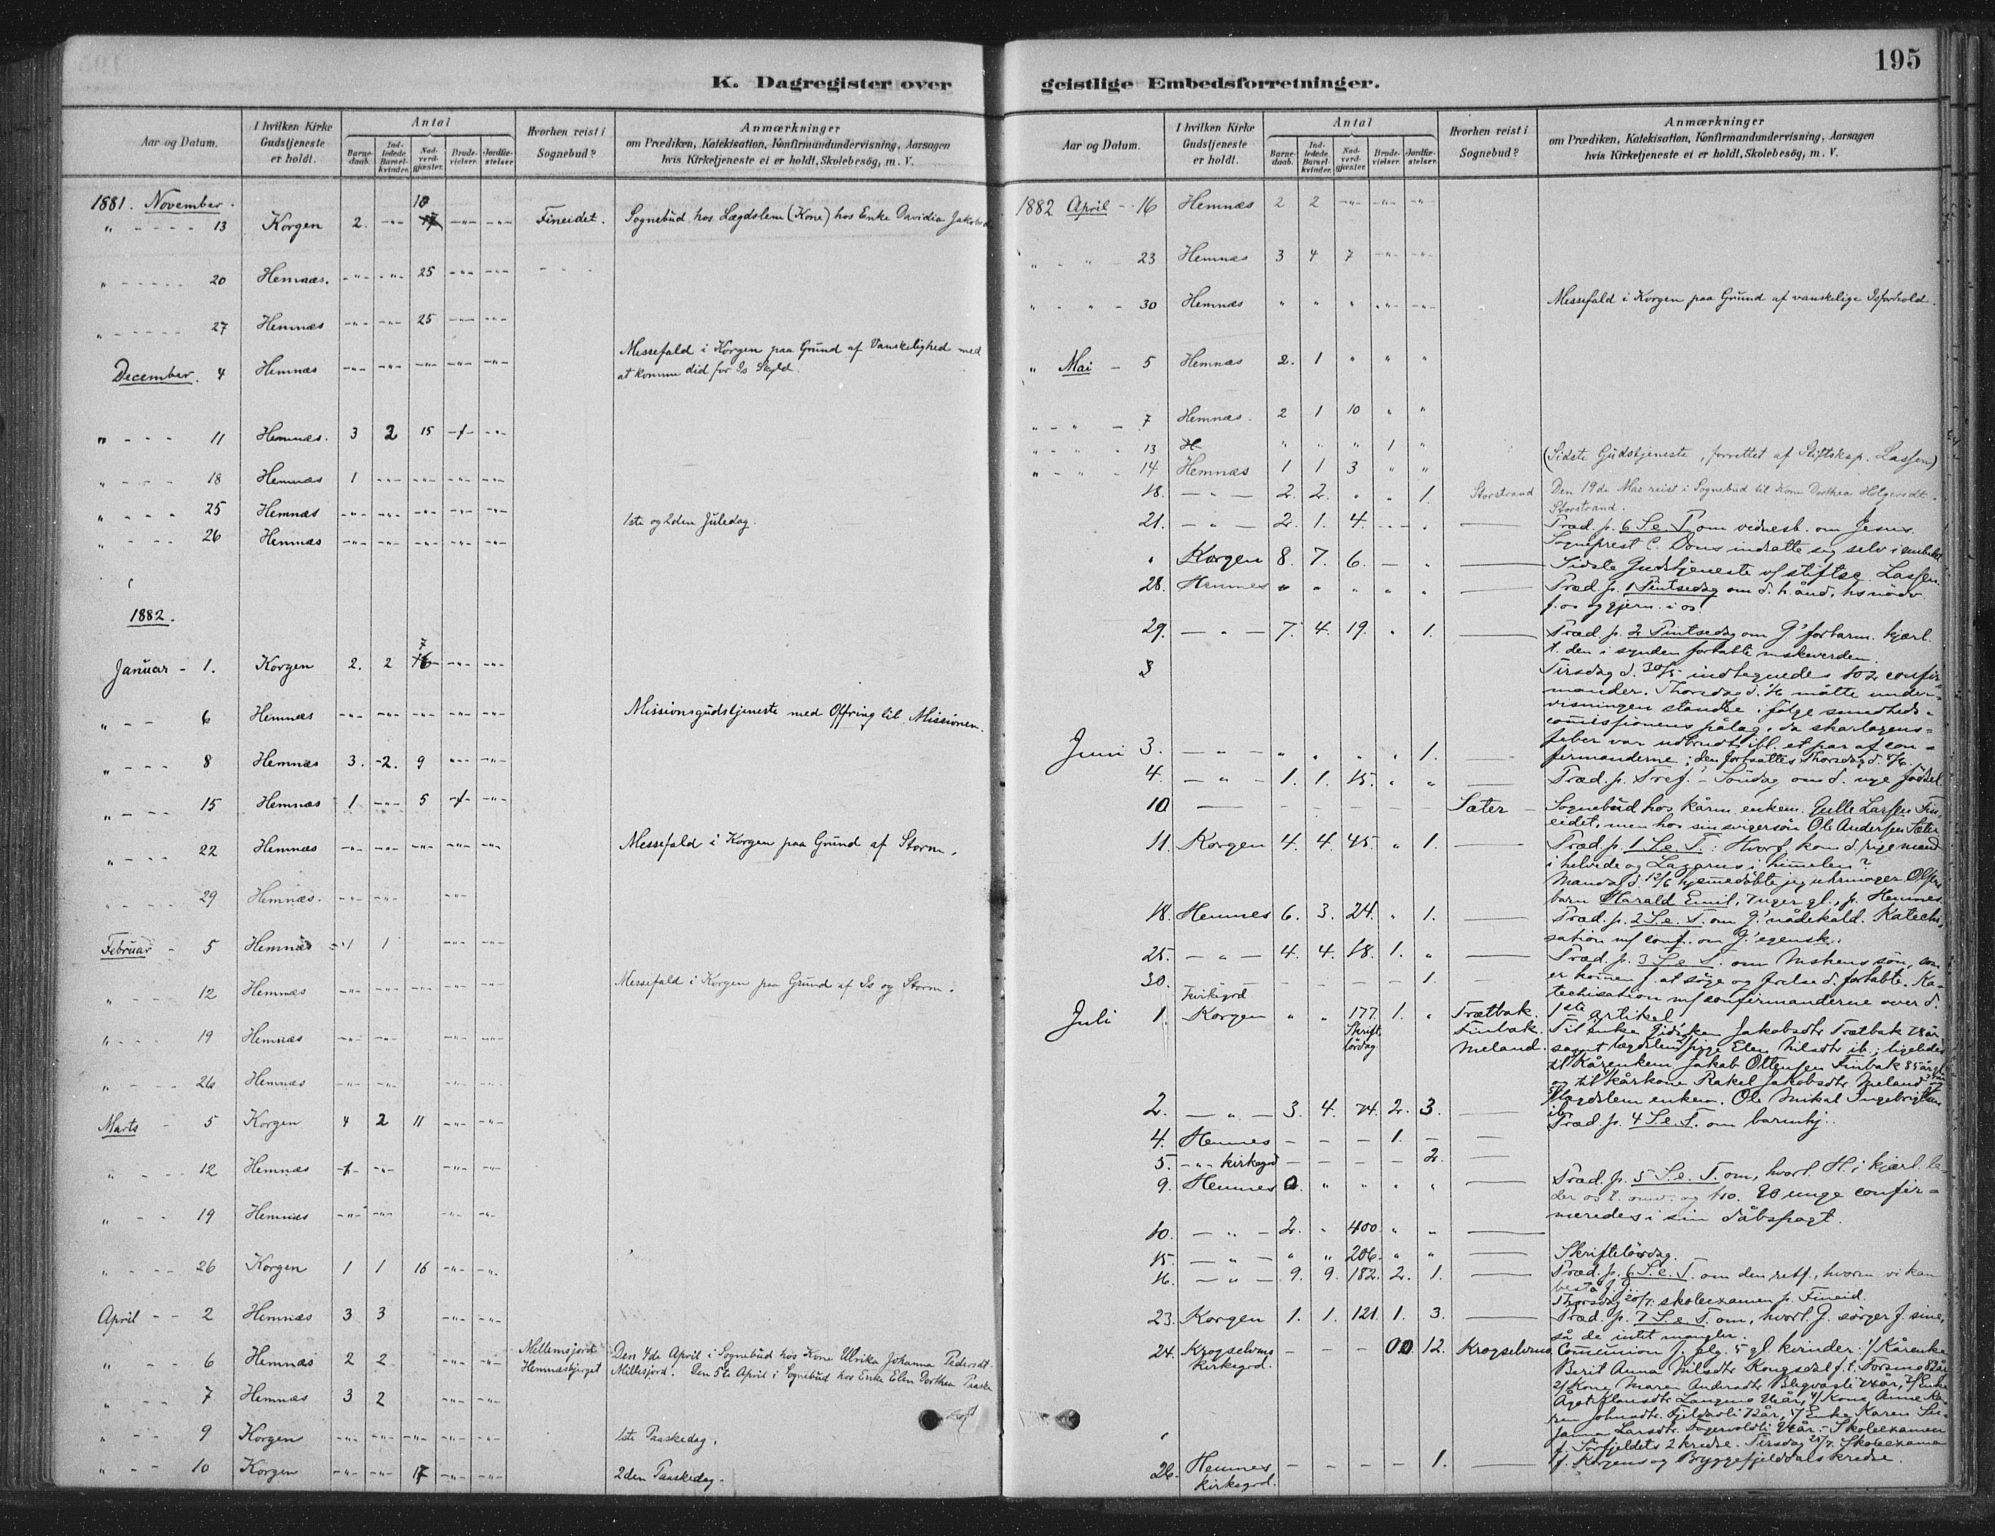 K. Dagregister over
Aar og Datum.
I hvilken Kirke Gudstjeneste er holdt.
Antal
Barnedaab.
Indledede Barselkvinder.
Nadverdgjæster.
Brudevielser.
Jordfæstelser
Hvorhen reist i Sognebud?
Anmærkninger
om Prædiken, Katekisation, Konfirmandundervisning, Aarsagen
hvis Kirketjeneste ei er holdt, Skolebesøg, m. V.
1881. November. 18
" 13 Korgen 2. -"- -"- -"- Fineidet. Sognebud hos Lægdslem (Kone) hos Enke Davidia
" 20 Hemnæs. -"- -"- 25 -"- -"-
" 27 Hemnæs -"- -"- 25 -"- -"-
Messefald i Korgen paa Grund af Vanskelighed med
December. 4 Hemnæs -"- -"- -"- -"- -"- at komme did for Is Skyld.
" 11 Hemnæs. 3 2 15 -1- -"-
" 18 Hemnæs 1 -"- -"- -"- -"-
" 25 Hemnæs -"- -"- -"- -"- -"- 1ste og 2den Juledag.
" 26 Hemnæs -"- -"- -"- -"- -"-
1882.
7
Januar - 1. Korgen 2. 2 16 -"- -"-
" 6 Hemnæs -"- -"- -"- -"- -"- Missionsgudstjeneste med Offring til Missionen.
" 8 Hemnæs 3. -2. 9 -"- -"-
" 15 Hemnæs 1 -"- 5 -1- -"-
" 22 Hemnæs -"- -"- -"- -"- -"- Messefald i Korgen paa Grund af Storm.
" 29 Hemnæs. -"- -"- -"-
Februar - 5 Hemnæs 1 1 -"- -"-
" 12 Hemnæs -"- -"- -"- -"- -"- Messefald i Korgen paa Grund af Is og Storm.
" 19 Hemnæs -"- -"- -"- -"-
" 26 Hemnæs -"- -"- -"- -"-
Marts - 5 Korgen 4 2 11 -"- -"-
" 12 Hemnæs -1- -"- -"- -"-
" 19 Hemnæs -"- -"- -"- -"-
" 26 Korgen 1 1 16 -"- -"-
April - - 2 Hemnæs 3 3 -"- -"-
" 6 Hemnæs 2 2 -"- -"- Hemnæsbjerget Den 4de April i Sognebud hos Kone Ulrika Johanna Pedersdt.
Den 5te April i Sognebud hos Enke Elen Dorthea
" 7 Hemnæs 3 2 -"- -"-
" 9 Korgen -"- -"- -"- -"- -"- 1ste Paaskedag.
" 10 Korgen -"- -"- 17 -"- -"- 2den Paaskedag.
195
geistlige Embedsforretninger.
Aar og Datum.
I hvilken Kirke Gudstjeneste er holdt.
Antal
Barnedaab.
Indledede Barselkvinder.
Nadverdgjæster.
Brudevielser.
Jordfæstelser.
Hvorhen reist i Sognebud?
Anmærkninger
om Prædiken, Katekisation, Konfirmandundervisning, Aarsagen
hvis Kirketjeneste ei er holdt, Skolebesøg, m. V.
1882 April - 16 Hemnæs 2 2 -"- -"- -"-
" " - 23 Hemnæs 3 4 7 -"- -"-
" " - 30 Hemnæs " " " " " Messefald i Korgen paa Grund af vanskelige Isforhold.
" Mai - 5 Hemnæs 2. 1 " " "
" " - 7 Hemnæs. 2 1 10 " "
" " - 13 H " " " 1 "
" " - 14 Hemnæs 1 1 3 " " (Sidste Gudstjeneste, forrettet af Stiftskap. Lassen)
18. - " - 2. 2. " " 1. Storstrand Den 19de Mai reist i Sognebud til Kone Dorthea Holgersdt.
Storstrand.
21. - " - 2. 1. 4. - " Præd. p. 6 S. e. P. om vidnesb. om Jesus.
Sogneprest C. Dons indsatte sig selv i embedet
" Korgen 8. 7. 6. - " Sidste Gudstjeneste v/ stiftsc. Lassen.
28. Hemnes " " " " " Præd. p. 1 Pintsedag om d. h. ånd,
f. os og gjern. i os.
29. - " - 7. 4. 19. " 1. Præd. p. 2 Pintsedag om G's forbarm. kjærl.
t. den i synden fortabte mskeverden.
Tirsdag d. 30/5 indtegnedes 102 confir-
mander. Thorsdag d. 1/6 måtte under-
visningen standse ifølge sundheds-
comissionens pålæg, da skarlagens-
feber var udbrudt ibl. et par af con-
Juni 3. - " - " " " " 1. firmanderne; den fortsattes Thorsdag d. 8/6.
4. - " - 1. 1. 15. " " Præd. p. Tref. - Søndag om d. nye fødsel.
10. Sæter Sognebud hos kårm. enkem. Gulle Larsen Fin-
eidet, men hos sin svigersøn Ole Andersen Sæter
11. Korgen 4. 4. 45. " 1. Præd. p. 1 S. e. T.: Hvorf. kom d. rige mand
i helvede og Lazarus i himmelen?
Mandag d. 12/6 hjemmedøbte jeg uhrmager Olsens
barn Harald Emil, 7 uger gl., p. Hemnes.
18. Hemnes 6. 3. 24. " 1. Præd. p. 2 S. e. T. om G.' nådekald. Katechi-
sation m/ conf. om G.' egensk.
25. - " - 4. 4. 18. 1. " Præd. p. 3 S. e. T. om Mskens søn, som
30. - - - - 1. er kommen f. at søge og frelse d. fortabte. Ka-
techisation m/ confirmanderne over d.
1ste artikel.
Juli 1. Korgen " " 177. 1. " Trætbak. Til enke Jakobsdtr. Trætbak 78 år
Skrift. lørdag. Finbak. samt lægdslem pige Elen Nilsdtr ib.; ligeledes
Meland. til Kårenkem. Jakob Ottensen Finbak 85 år gl.
til kårkone Rakel Jakobsdtr. Meland
2. - " - 3. 4. 74. 2. 3. lægdslem enkem. Ole Mikal Ingebrigtsen
ib. Præd. p. 4 S. e. T. om barmhj.
4. Hemnes - - - 1. -
5. - " - kirkegrd - - - - 2.
9. Hemnes " " " " Præd. p. 5 S. e. T. om, hvorl. H. i kjærl. le-
der os t. omv. og tro. 90 unge confir-
meredes i sin dåbspagt.
10. - " - 2. " 400. " "
15. - " - " " 206. " " Skriftelørdag.
16. - " - 9. 9. 182. 2. 1. Præd. p. 6 S. e. T. om den retf., hvorm vi kan
bestå f. G.
Thorsdag 20/7. skoleexamen p. Fineid.
23. Korgen 1. 1. 121. 1. 3. Præd. p. 7 S. e. T. om, hvorl. G. sørger f. sine,
så de intet mangler.
24. Krogselvmo kirkegrd. - - - 12. Krogselvmo. Communion f. flg. 5 gl. kvinder: 1/ Kårenke
Berit Anna Nilsdtr Kongsdal f. t. Forsmo 82 år
2/ Kone Maren Andersdtr 74 år, 3/ Enke
4/ Kone Anne Ka-
ren Johnsdtr. Fjeldavli 72 år, 5/ Enke Karen Su-
sanna Larsdtr. - Skoleexamen
f. Sørfjeldets 2 kredse. Tirsdag 25/7. Skoleexamen
26. Hemnes kirkegrd. - - - - 1. f. Korgens og Bryggefjelddals kredse.